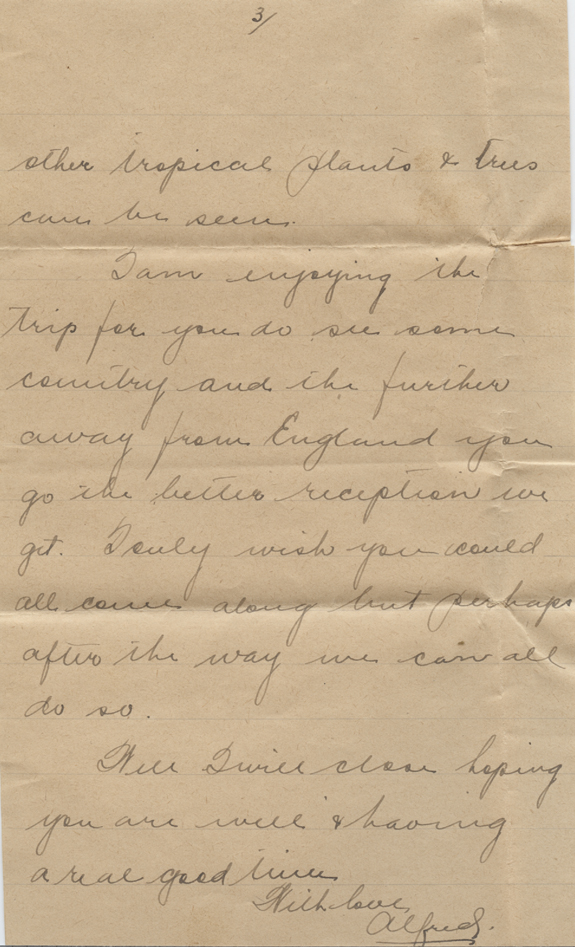 3/
other tropical plants & trees
can be seen.
I am enjoying the
trip for you do see some
country and the further
away from England you
go the better reception we
get. I only wish you could
all come along but perhaps
after the way we can all
do so.
Well I will close hoping
you are well & having
a real good time
With love
Alfred.